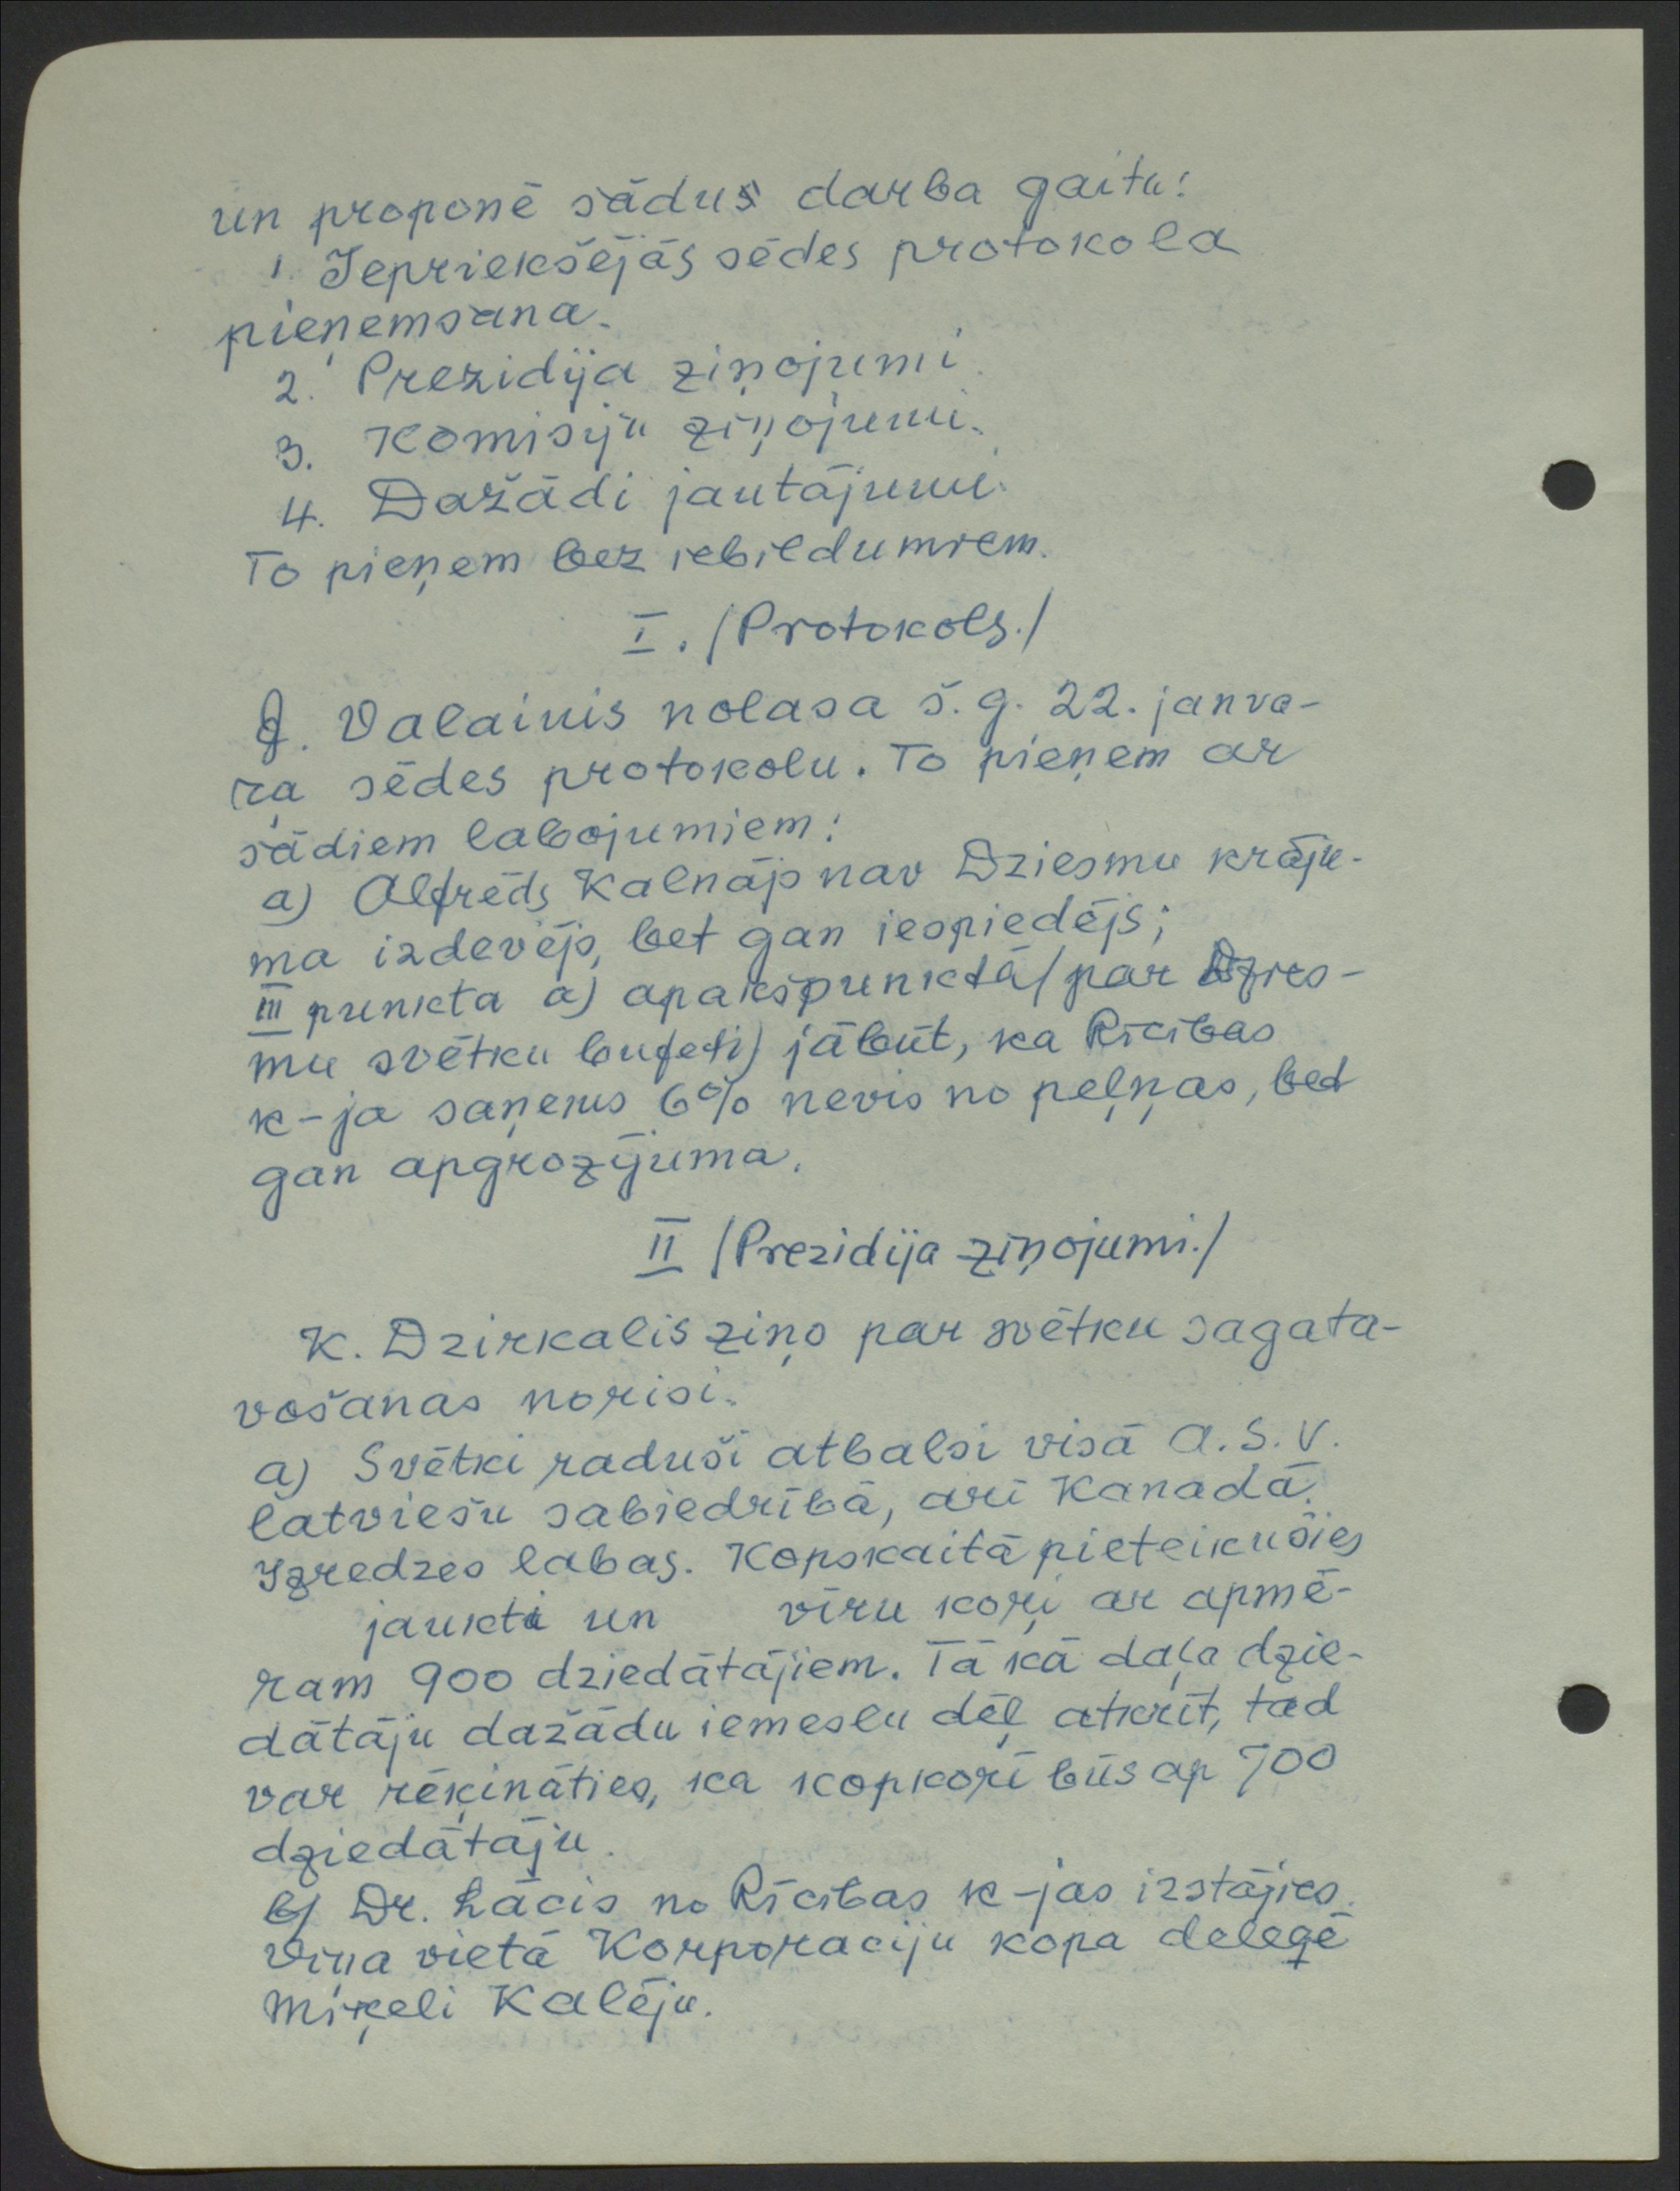 un proponē sādu darba gaitu:
1. Iepriekšējās sēdes protokola
pieņemsana.
2. Prezidija ziņojumi.
3. Komisiju ziņojumi.
4. Dažādi jautājumi.
To pieņem bez iebildumiem.
I. /Protokols./
J. Valainis nolasa š.g. 22. janva-
ŗa sēdes protokolu. To pieņem ar
sādiem labojumiem:
a) Alfrēds Kalnājs nav Dziesmu krāju-
ma izdevējs, bet gan iespiedējs;
III punkta a) apakšpunktā/par Dzies-
mu svētku bufeti) jābūt, ka Rīcības
k-ja saņems 6% nevis no peļņas, bet
gan apgrozījuma.
II /Prezidija ziņojumi./
K. Dzirkalis ziņo par svētku sagata-
vošanas norisi.
a) Svētki raduši atbalsi visā A.S.V.
latviešu sabiedrībā, arī Kanadā.
Izredzes labas. Kopskaitā pieteikušies
jaukti un vīru koŗi ar apmē-
ram 900 dziedātājiem. Tā kā daļa dzie-
dātāju dažādu iemeslu dēļ atkrīt, tad
var rēķināties, ka kopkorī būs ap 700
dziedātāju.
b) Dr. Lācis no Rīcības k-jas izstājies.
Viņa vietā Korporaciju kopa deleģē
Miķeli Kalēju.